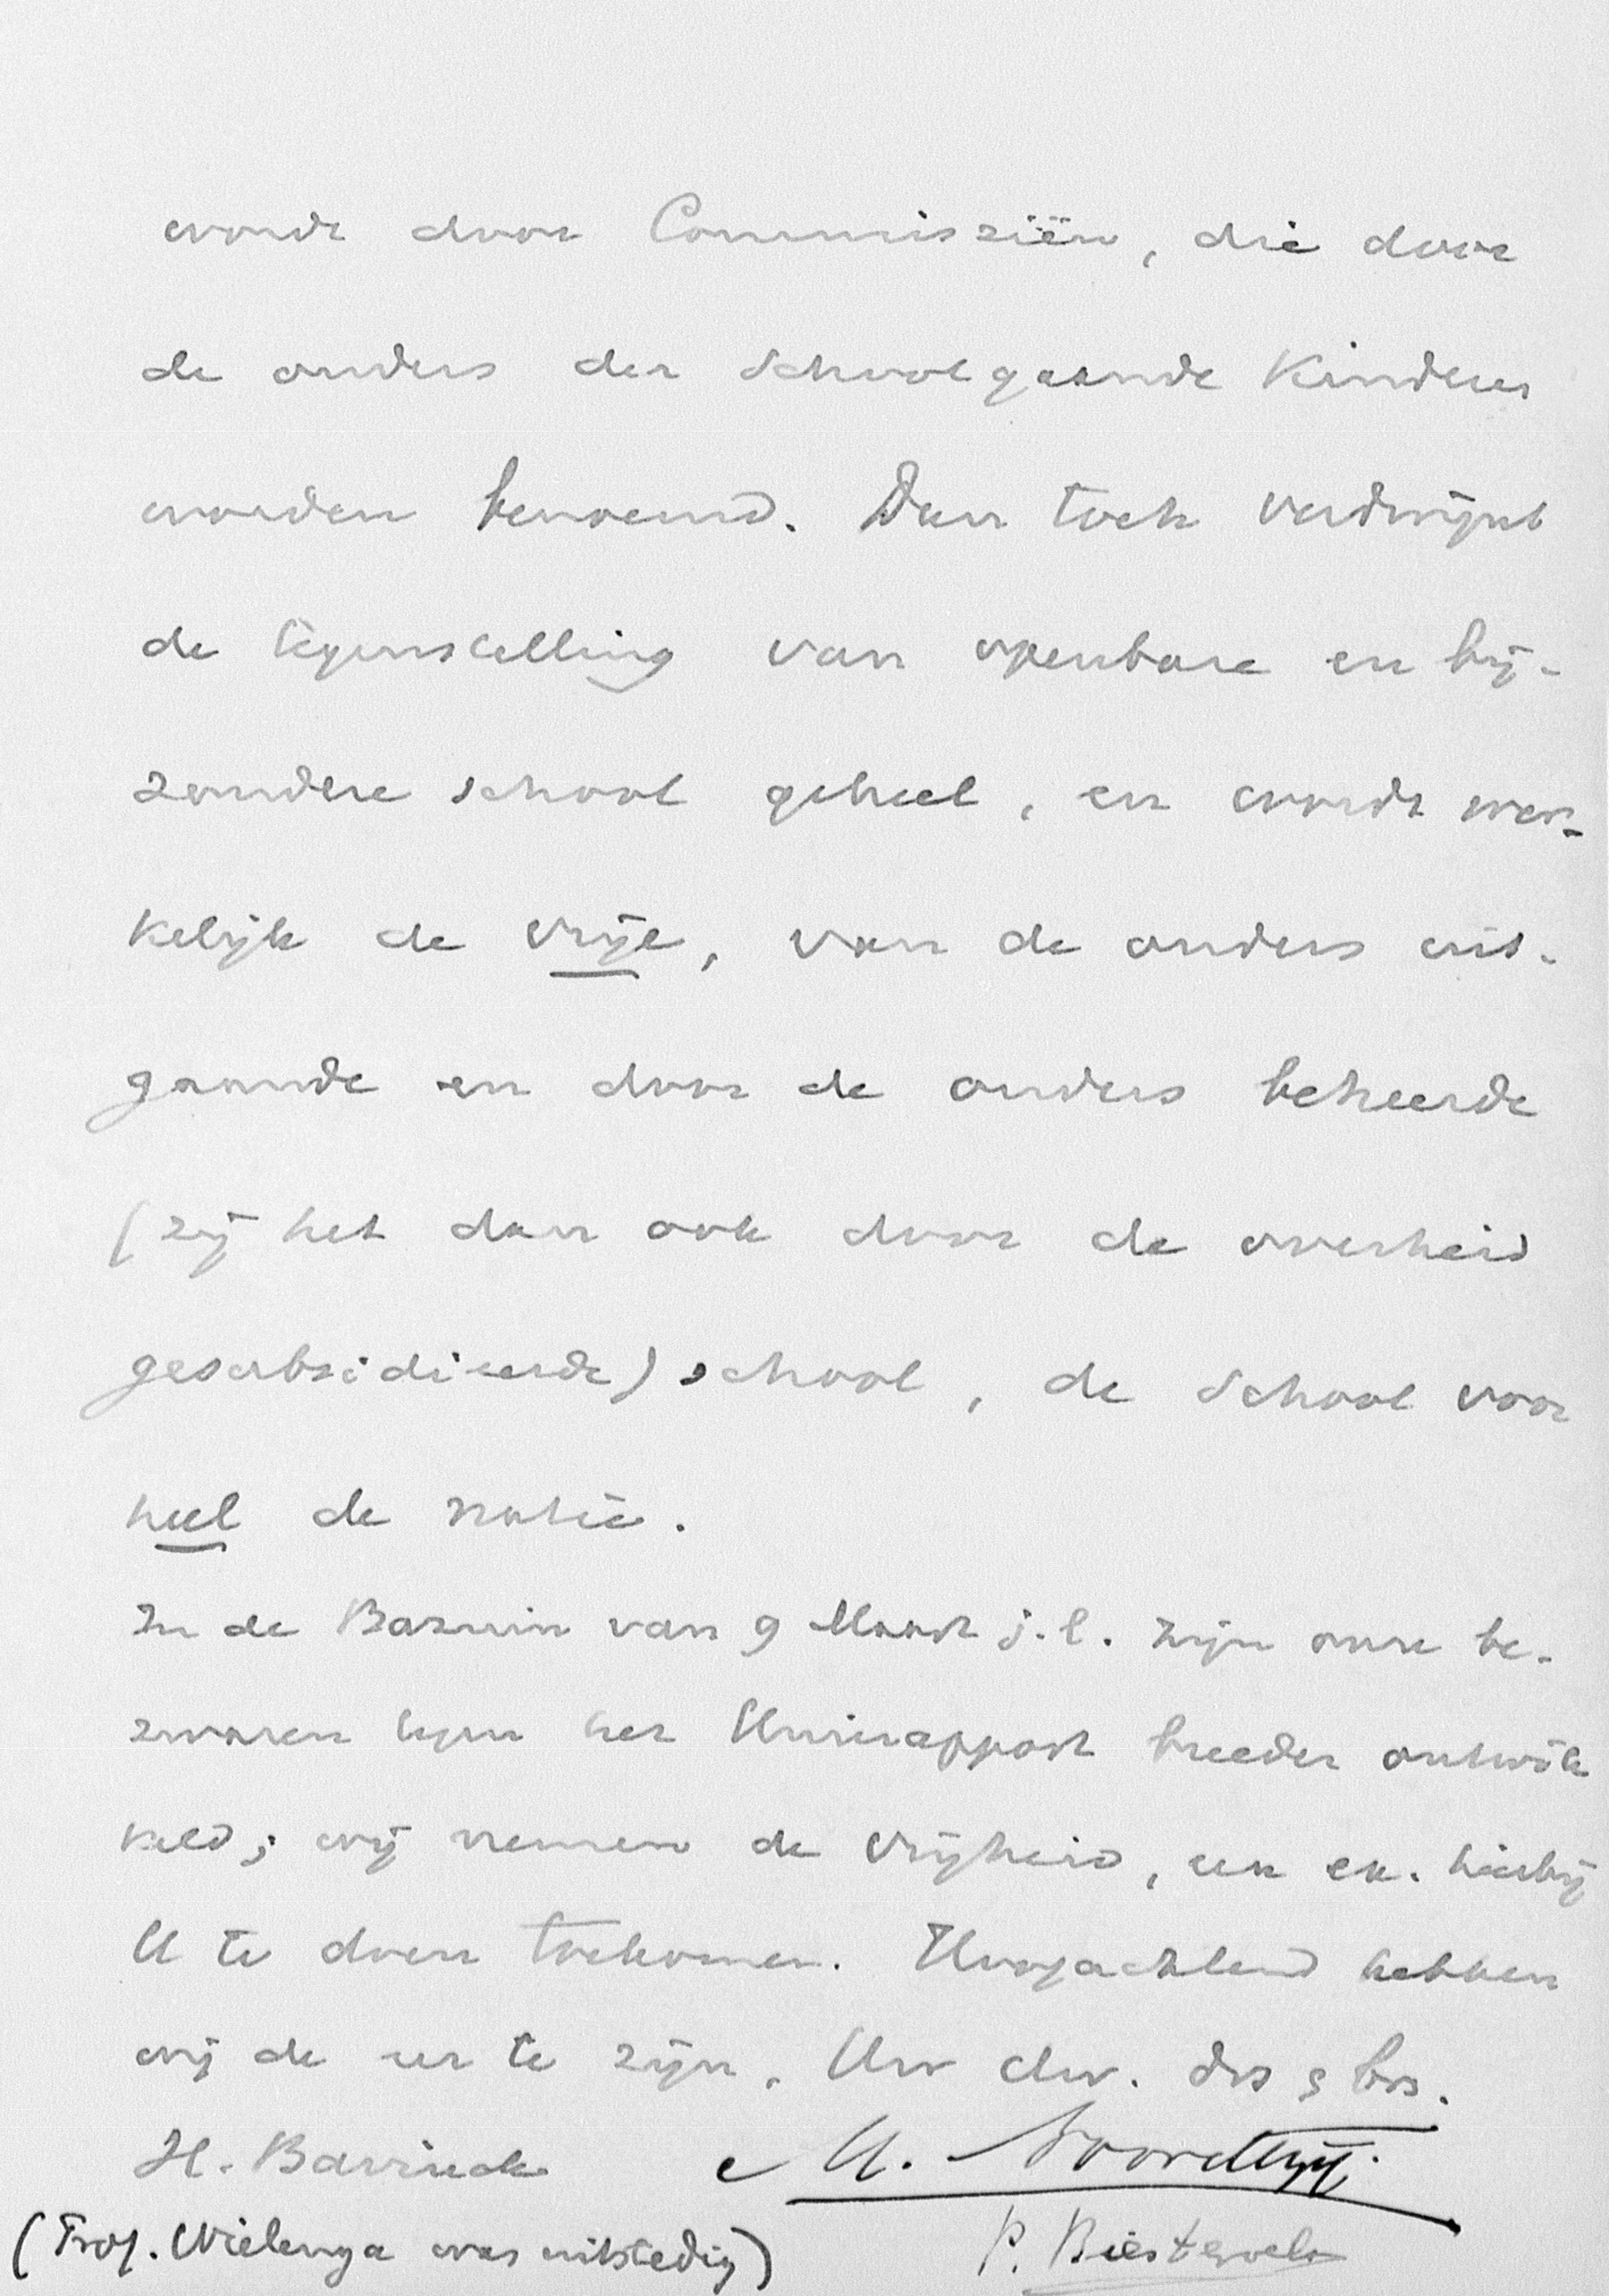 wordt door Commissiën, die door
de ouders der schoolgaande Kinderen
worden benoemd. Dan toch verdwijnt
de tegenstelling van openbare en bij-
zondere school geheel, en wordt wer-
kelijk de vrije, van de ouders uit-
gaande en door de ouders beheerde
(zij het dan ook door de overheid
gesubsidieerde) school, de school voor
heel de natie.
In de Bazuin van 9 Maart j.l. zijn onze be-
zwaren tegen het Unierapport breeder ontwik
keld; wij nemen de vrijheid, een ex. hierbij
U te doen toekomen. Hoogachtend hebben
wij de eer te zijn, Uw dw. drs & brs.
H. Bavinck M. Noordtzij.
(Prof. Wielenga was uitstedig) P. Biesterveld